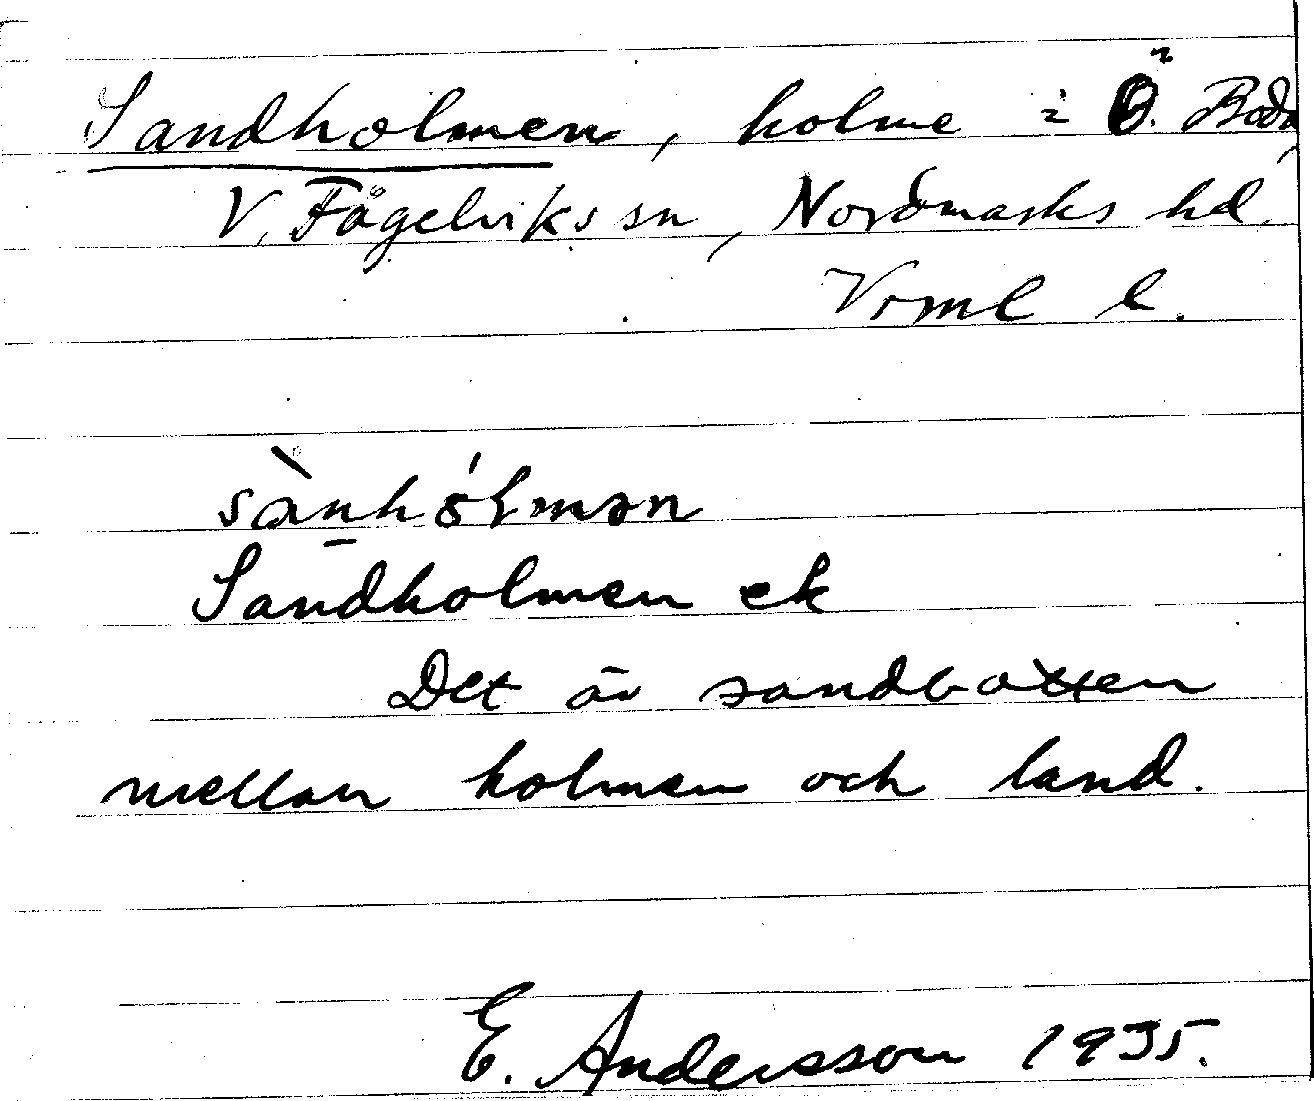 Sandholmen, holme i Ö. Boda,
V. Fågelviks sn, Nordmarks hd,
Vrml l.
sànhól̵mən
Sandholmen ek
Det är sandbotten
mellan holmen och land.
E. Andersson 1935.